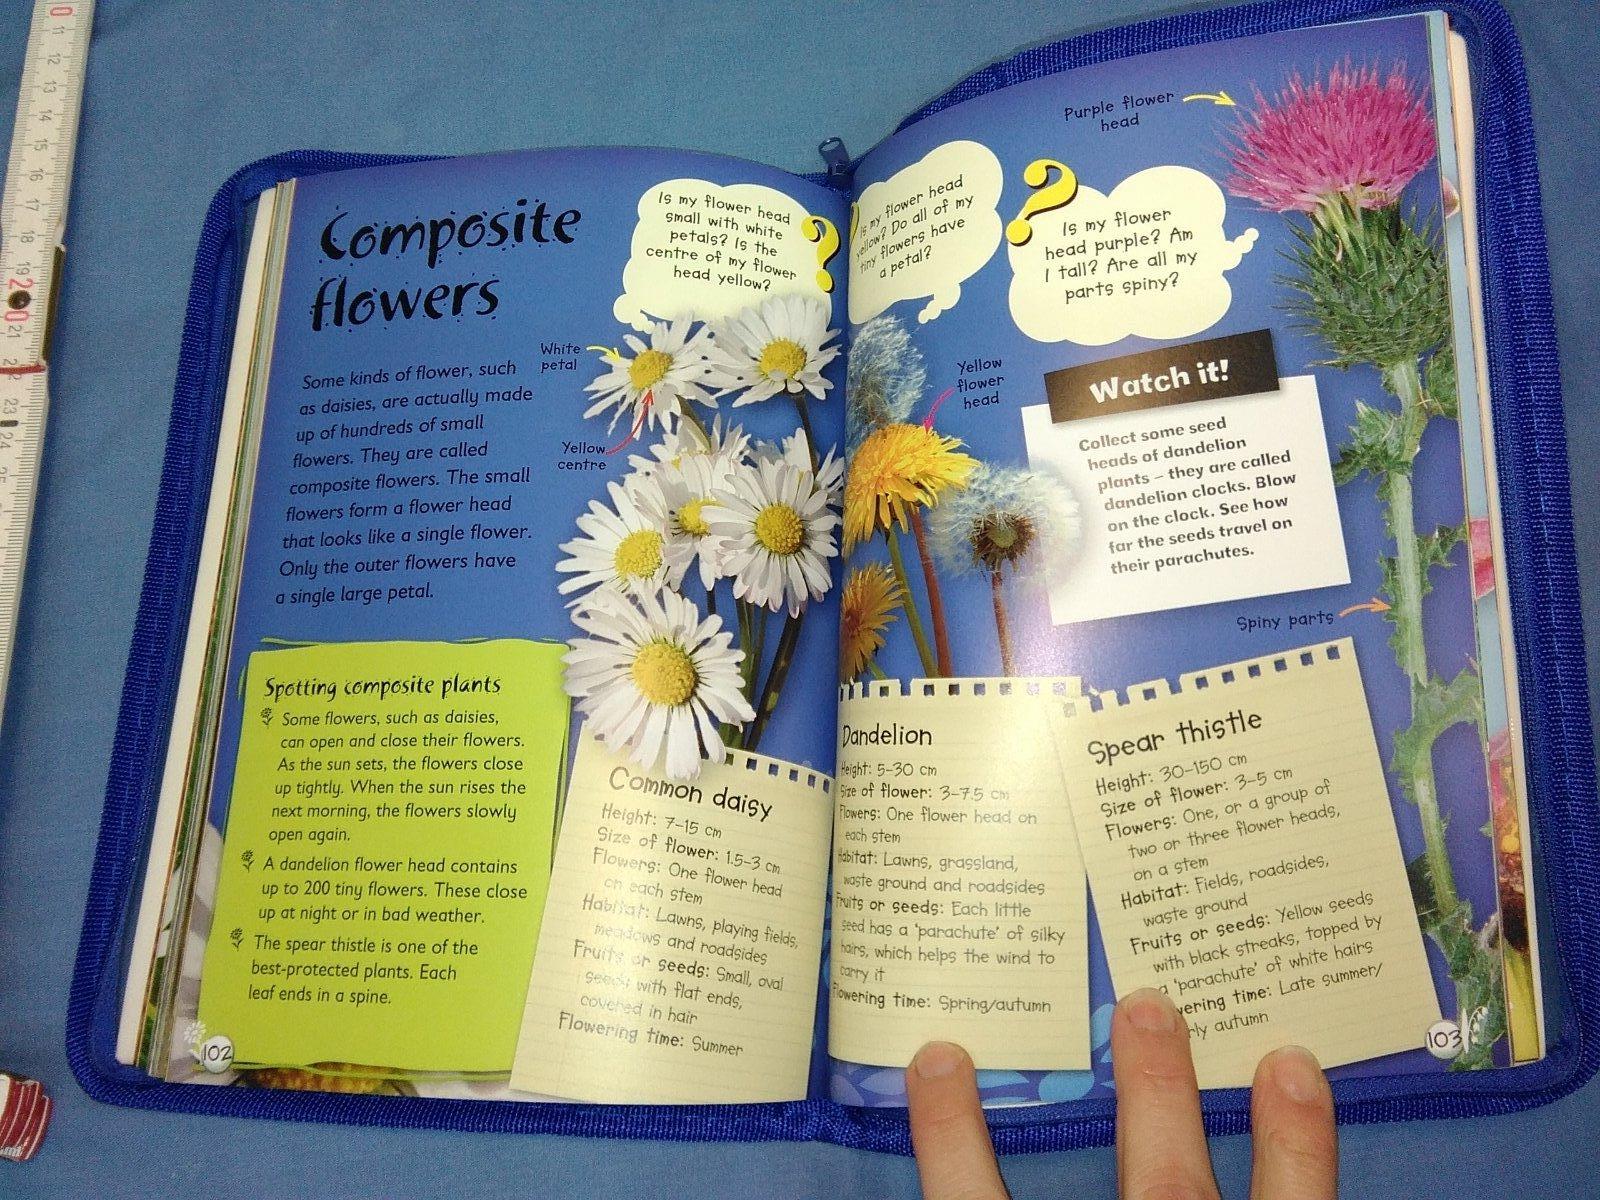 Composite
flowers
Some kinds of flower, such
as daisies, are actually made
up of hundreds of small
flowers. They are called
composite flowers. The small
flowers form a flower head
that looks like a single flower.
Only the outer flowers have
a single large petal.
Is my flower head
small with white
petals? Is the
centre of my flower
head yellow?
?
White
petal
Yellow
centre
Spotting composite plants
Some flowers, such as daisies,
can open and close their flowers.
As the sun sets, the flowers close
up tightly. When the sun rises the
next morning, the flowers slowly
open again.
A dandelion flower head contains
up to 200 tiny flowers. These close
up at night or in bad weather.
The spear thistle is one of the
best-protected plants. Each
leaf ends in a spine.
102
Common daisy
Height: 7-15 cm
Size of flower: 1.5-3 cm
Flowers: One flower head
on each stem
Habitat: Lawns, playing fields,
meadows and roadsides
Fruits or seeds: Small, oval
seeds with flat ends,
covered in hair
Flowering time: Summer
Is my flower head
yellow? Do all of my
tiny flowers have
a petal?
?
Is my flower
head purple? Am
I tall? Are all my
parts spiny?
Purple flower
head
Yellow
flower
head
Watch it!
Collect some seed
heads of dandelion
plants – they are called
dandelion clocks. Blow
on the clock. See how
far the seeds travel on
their parachutes.
Spiny parts
Dandelion
Height: 5-30 cm
Size of flower: 3-7.5 cm
Flowers: One flower head on
each stem
Habitat: Lawns, grassland,
waste ground and roadsides
Fruits or seeds: Each little
seed has a 'parachute' of silky
hairs, which helps the wind to
carry it
Flowering time: Spring/autumn
Spear thistle
Height: 30-150 cm
Size of flower: 3-5 cm
Flowers: One, or a group of
two or three flower heads,
on a stem
Habitat: Fields, roadsides,
waste ground
Fruits or seeds: Yellow seeds
with black streaks, topped by
a 'parachute' of white hairs
wering time: Late summer/
rly autumn
103
11
12
13
14
15
16
17
18
19
20
21
22
23
24
25